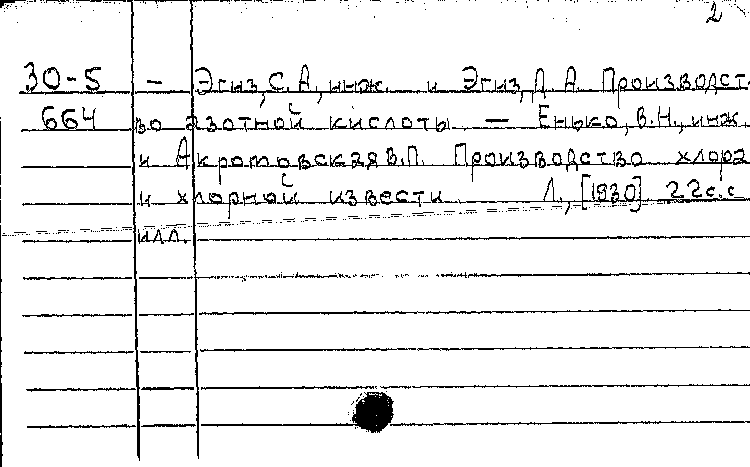 2
30-5 — Эгиз, С. А., инж. и Эгиз, Д. А. Производст-
664 во азотной кислоты. — Енько, В.Н., инж.
и Акромовская В.П. Производство хлора
и хлорной извести Л., [1930] 22 с. с
илл.